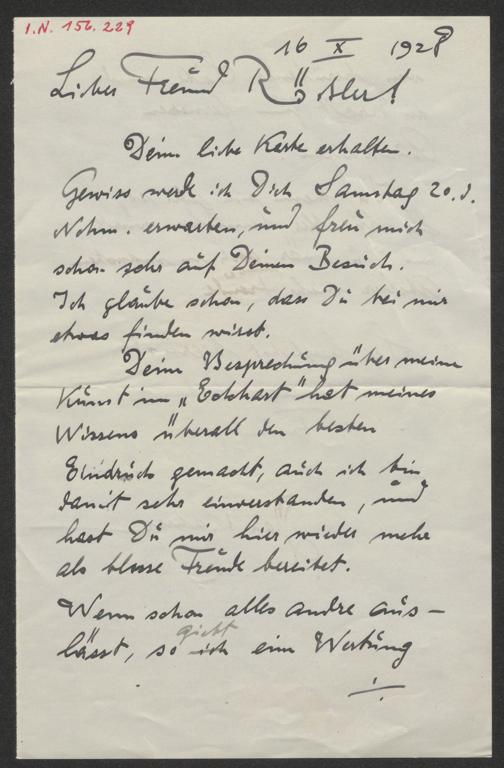 I.N. 156.229
16 X 1928
Lieber Freund Rössler!
Deine liebe Karte erhalten.
Gewiss werde ich Dich Samstag 20. d.
Nchm. erwarten, und freu mich
schon sehr auf Deinen Besuch.
Ich glaube schon, dass Du bei mir
etwas finden wirst.
Deine Besprechung über meine
Kunst im „Eckhart" hat meines
Wissens überall den besten
Eindruck gemacht, auch ich bin
damit sehr einverstanden, und
hast Du mir hier wieder mehr
als blosse Freude bereitet.
Wenn schon alles andre aus-
lässt, so giebt ich eine Wertung
./.